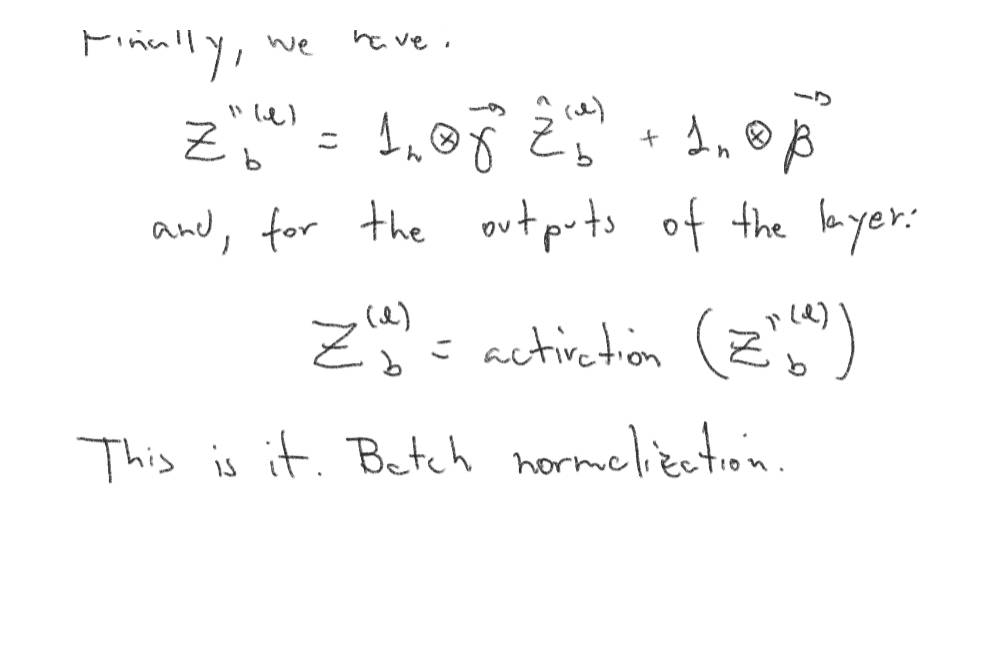 Finally, we have.
Z''_b^(l) = 1_n ⊗ γ⃗ Ẑ_b^(l) + 1_n ⊗ β⃗
and, for the outputs of the layer:
Z_b^(l) = activation (Z''_b^(l))
This is it. Batch normalization.